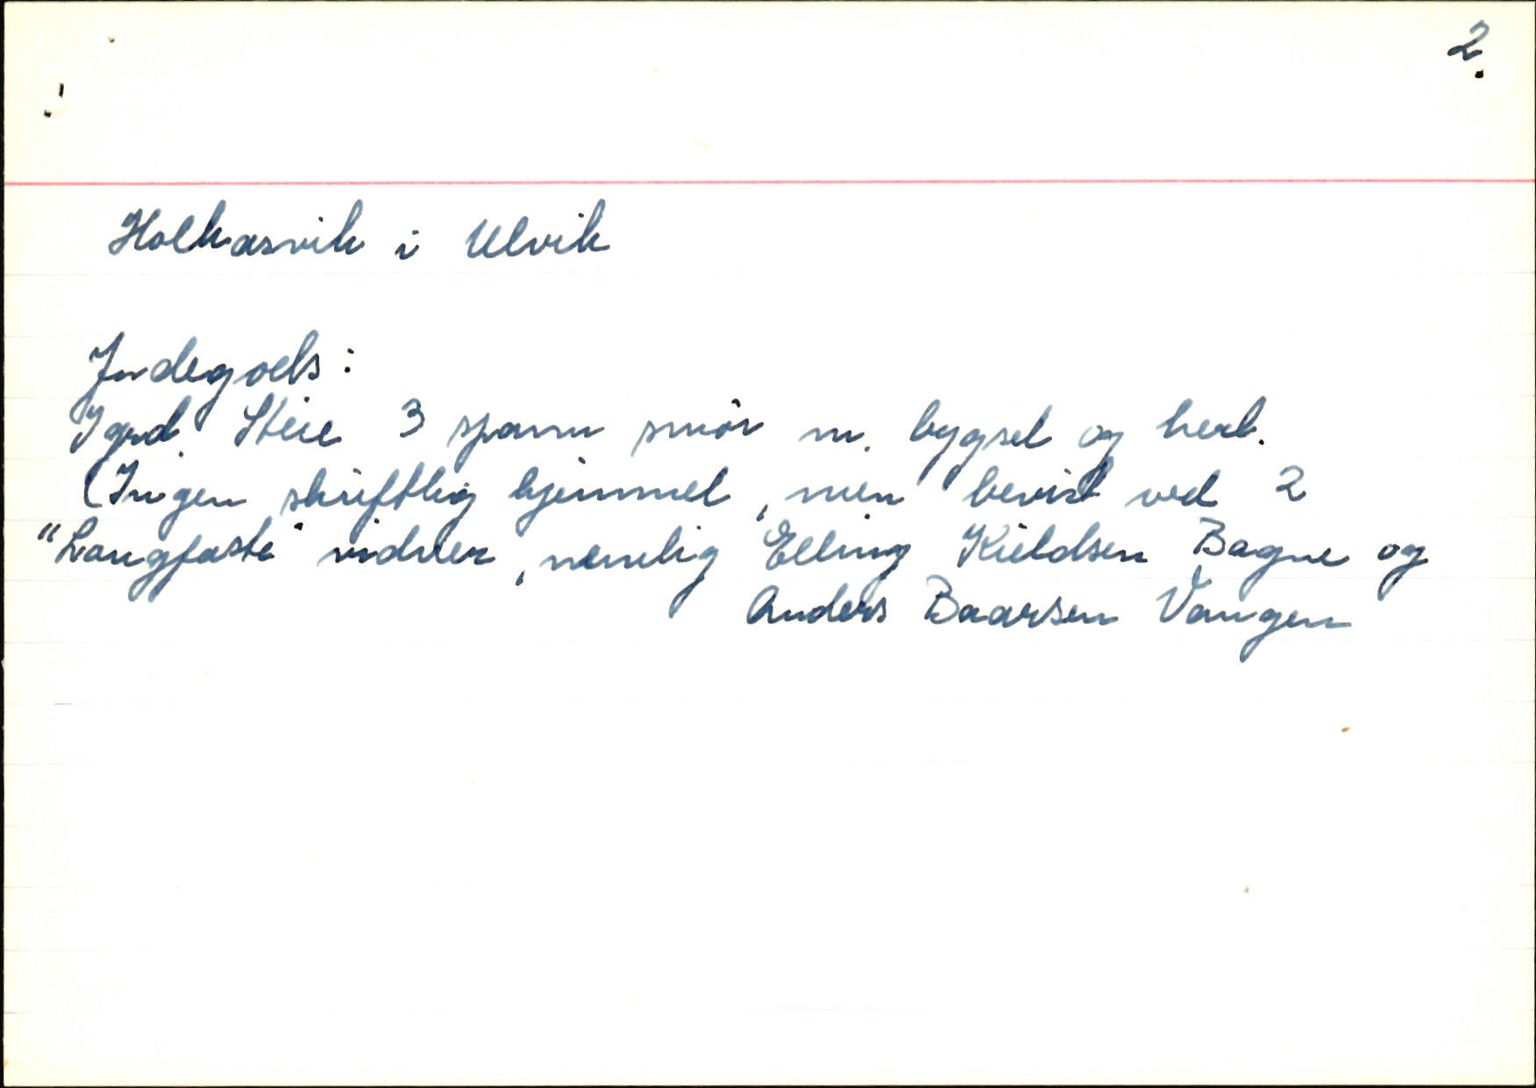 2.
Holkasvik i Ulvik
Jordegods:
I grd. Steie 3 spann smör m. bygsel og herl.
(Ingen skriftlig hjemmel, men bevist ved 2
"Langfaste" vidner, nemlig Elling Kieldsen Bagne og
Anders Baarsen Vangen